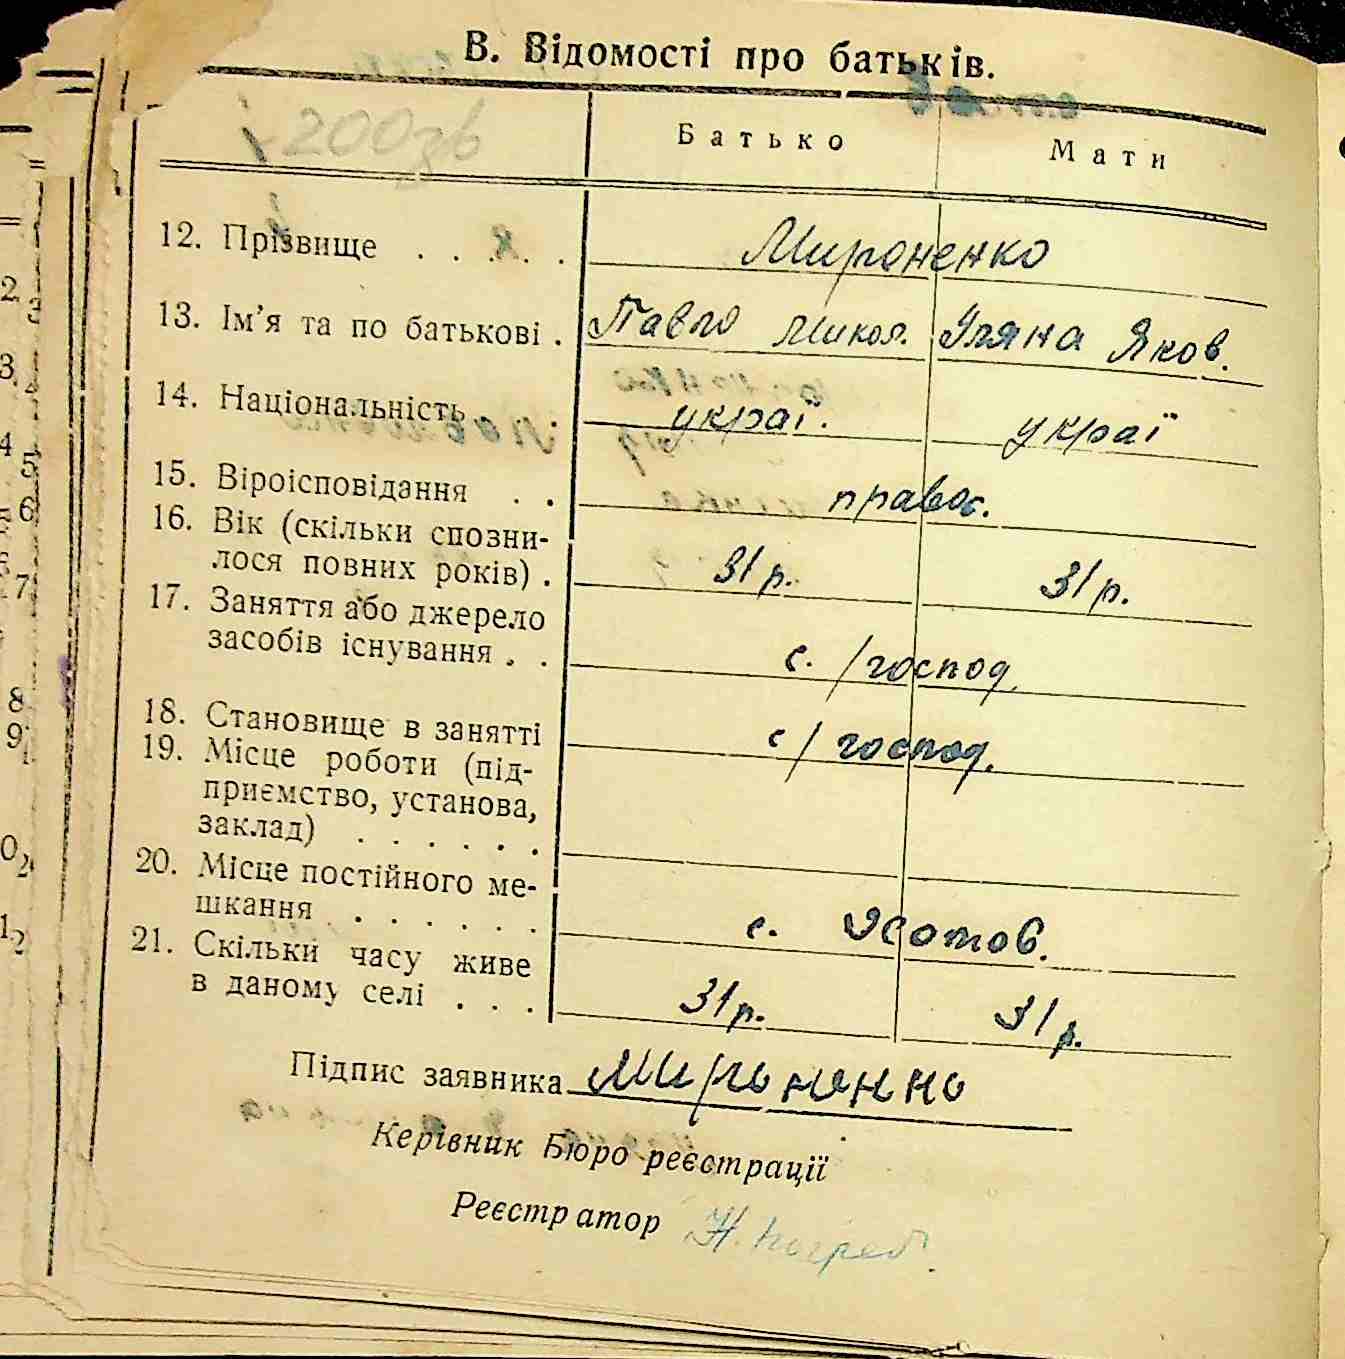 В. Відомості про батьків.
200
Батько Мати
12. Прізвище . . . . . Мироненко
13. Ім'я та по батькові . Павло Микол. Уляна Яков.
14. Національність . . украї. украї
15. Віроісповідання . . правос.
16. Вік (скільки спозни-
лося повних років) . 31 р. 31 р.
17. Заняття або джерело
засобів існування . . с./господ.
18. Становище в занятті с/господ.
19. Місце роботи (під-
приємство, установа,
заклад) . . . . . .
20. Місце постійного ме-
шкання . . . . . . с.
21. Скільки часу живе
в даному селі . . . 31 р. 31 р.
Підпис заявника Мироненко
Керівник Бюро реєстрації
Реєстратор